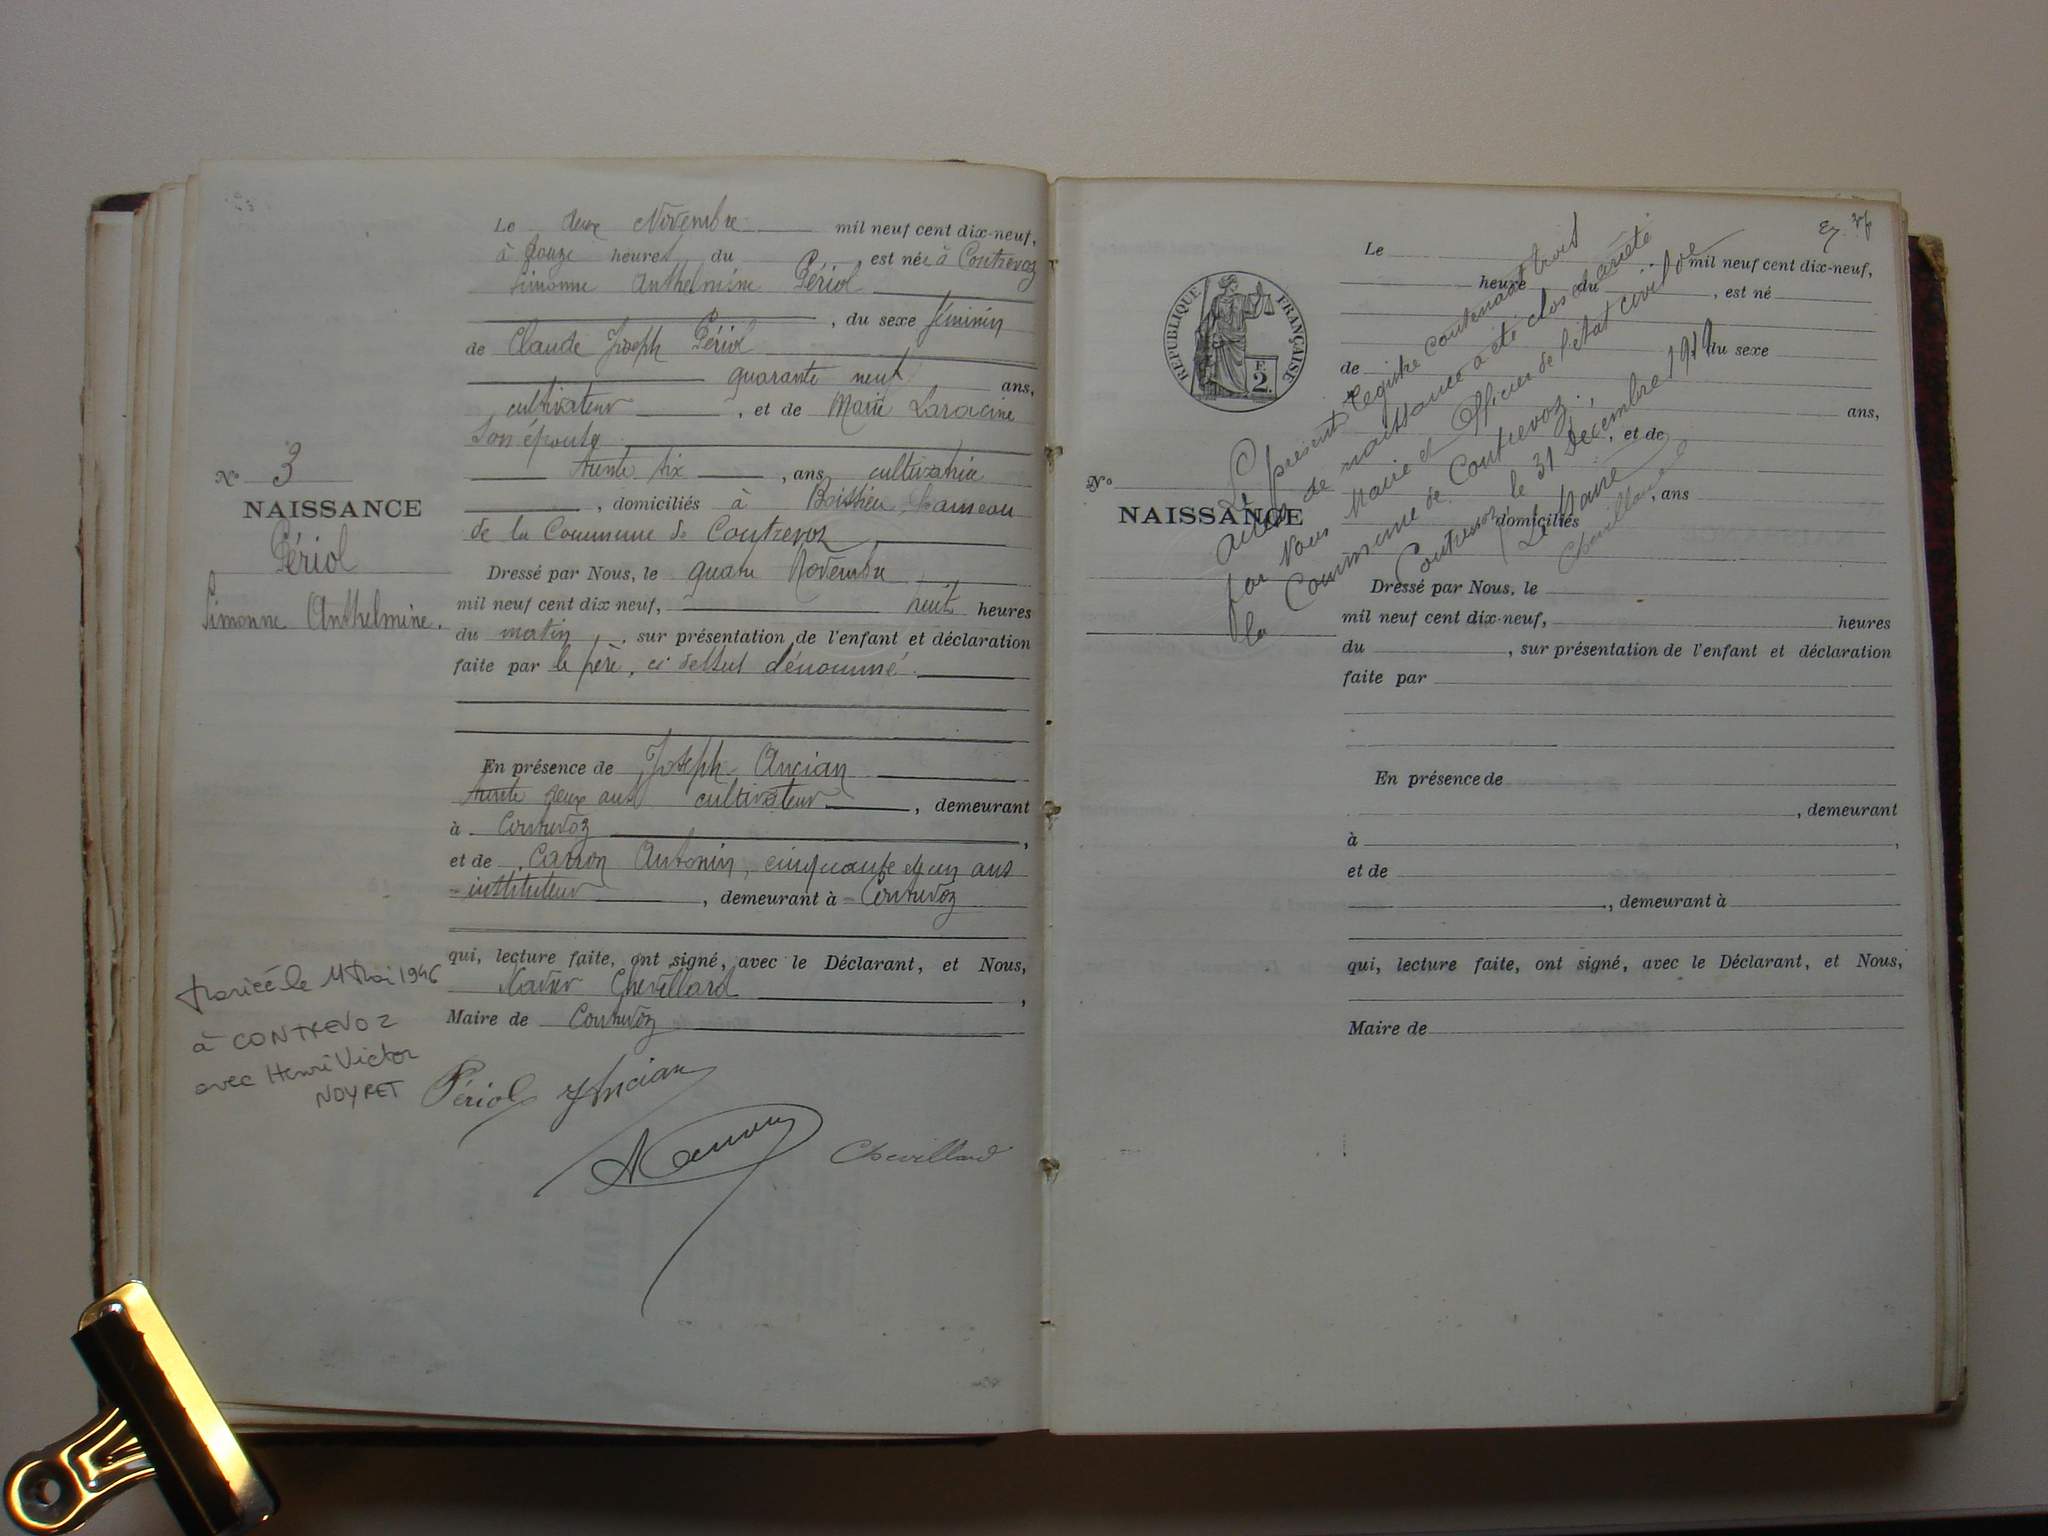 Le deux Novembre mil neuf cent dix-neuf,
à douze heures du , est née à Contrevoz
Simonne Anthelmine Périol
, du sexe féminin
de Claude Joseph Périol
quarante neuf ans,
cultivateur , et de Marie Laracine
son épouse
trente six , ans cultivatrice
, domiciliés à Boissieu, hameau
de la Commune de Contrevoz
Dressé par Nous, le quatre Novembre
mil neuf cent dix neuf, huit heures
du matin, sur présentation de l'enfant et déclaration
faite par le père, ci dessus dénommé.
En présence de Joseph Ancian
trente deux ans cultivateur , demeurant
à Contrevoz ,
et de Carron Antonin, cinquante et un ans
instituteur , demeurant à Contrevoz
qui, lecture faite, ont signé, avec le Déclarant, et Nous,
Xavier Chevillard ,
Maire de Contrevoz
Périol J Ancian
Chevillard
No 3
NAISSANCE
Périol
Simonne Anthelmine.
Mariée le 11 Mai 1946
à CONTREVOZ
avec Henri Victor
NOYRET
RÉPUBLIQUE FRANÇAISE
F.
2.
No
NAISSANCE
Le mil neuf cent dix-neuf,
heure du , est né
du sexe
de
ans,
, et de
, ans
domiciliés
Dressé par Nous, le
mil neuf cent dix-neuf, heures
du , sur présentation de l'enfant et déclaration
faite par
En présence de
, demeurant
à ,
et de
, demeurant à
qui, lecture faite, ont signé, avec le Déclarant, et Nous,
Maire de
Le présent Registre contenant trois
actes de naissance a été clos et arrêté
par Nous Maire et Officier de l'état civil de
la Commune de Contrevoz.
Contrevoz, le 31 décembre 1919
Le Maire
Chevillard